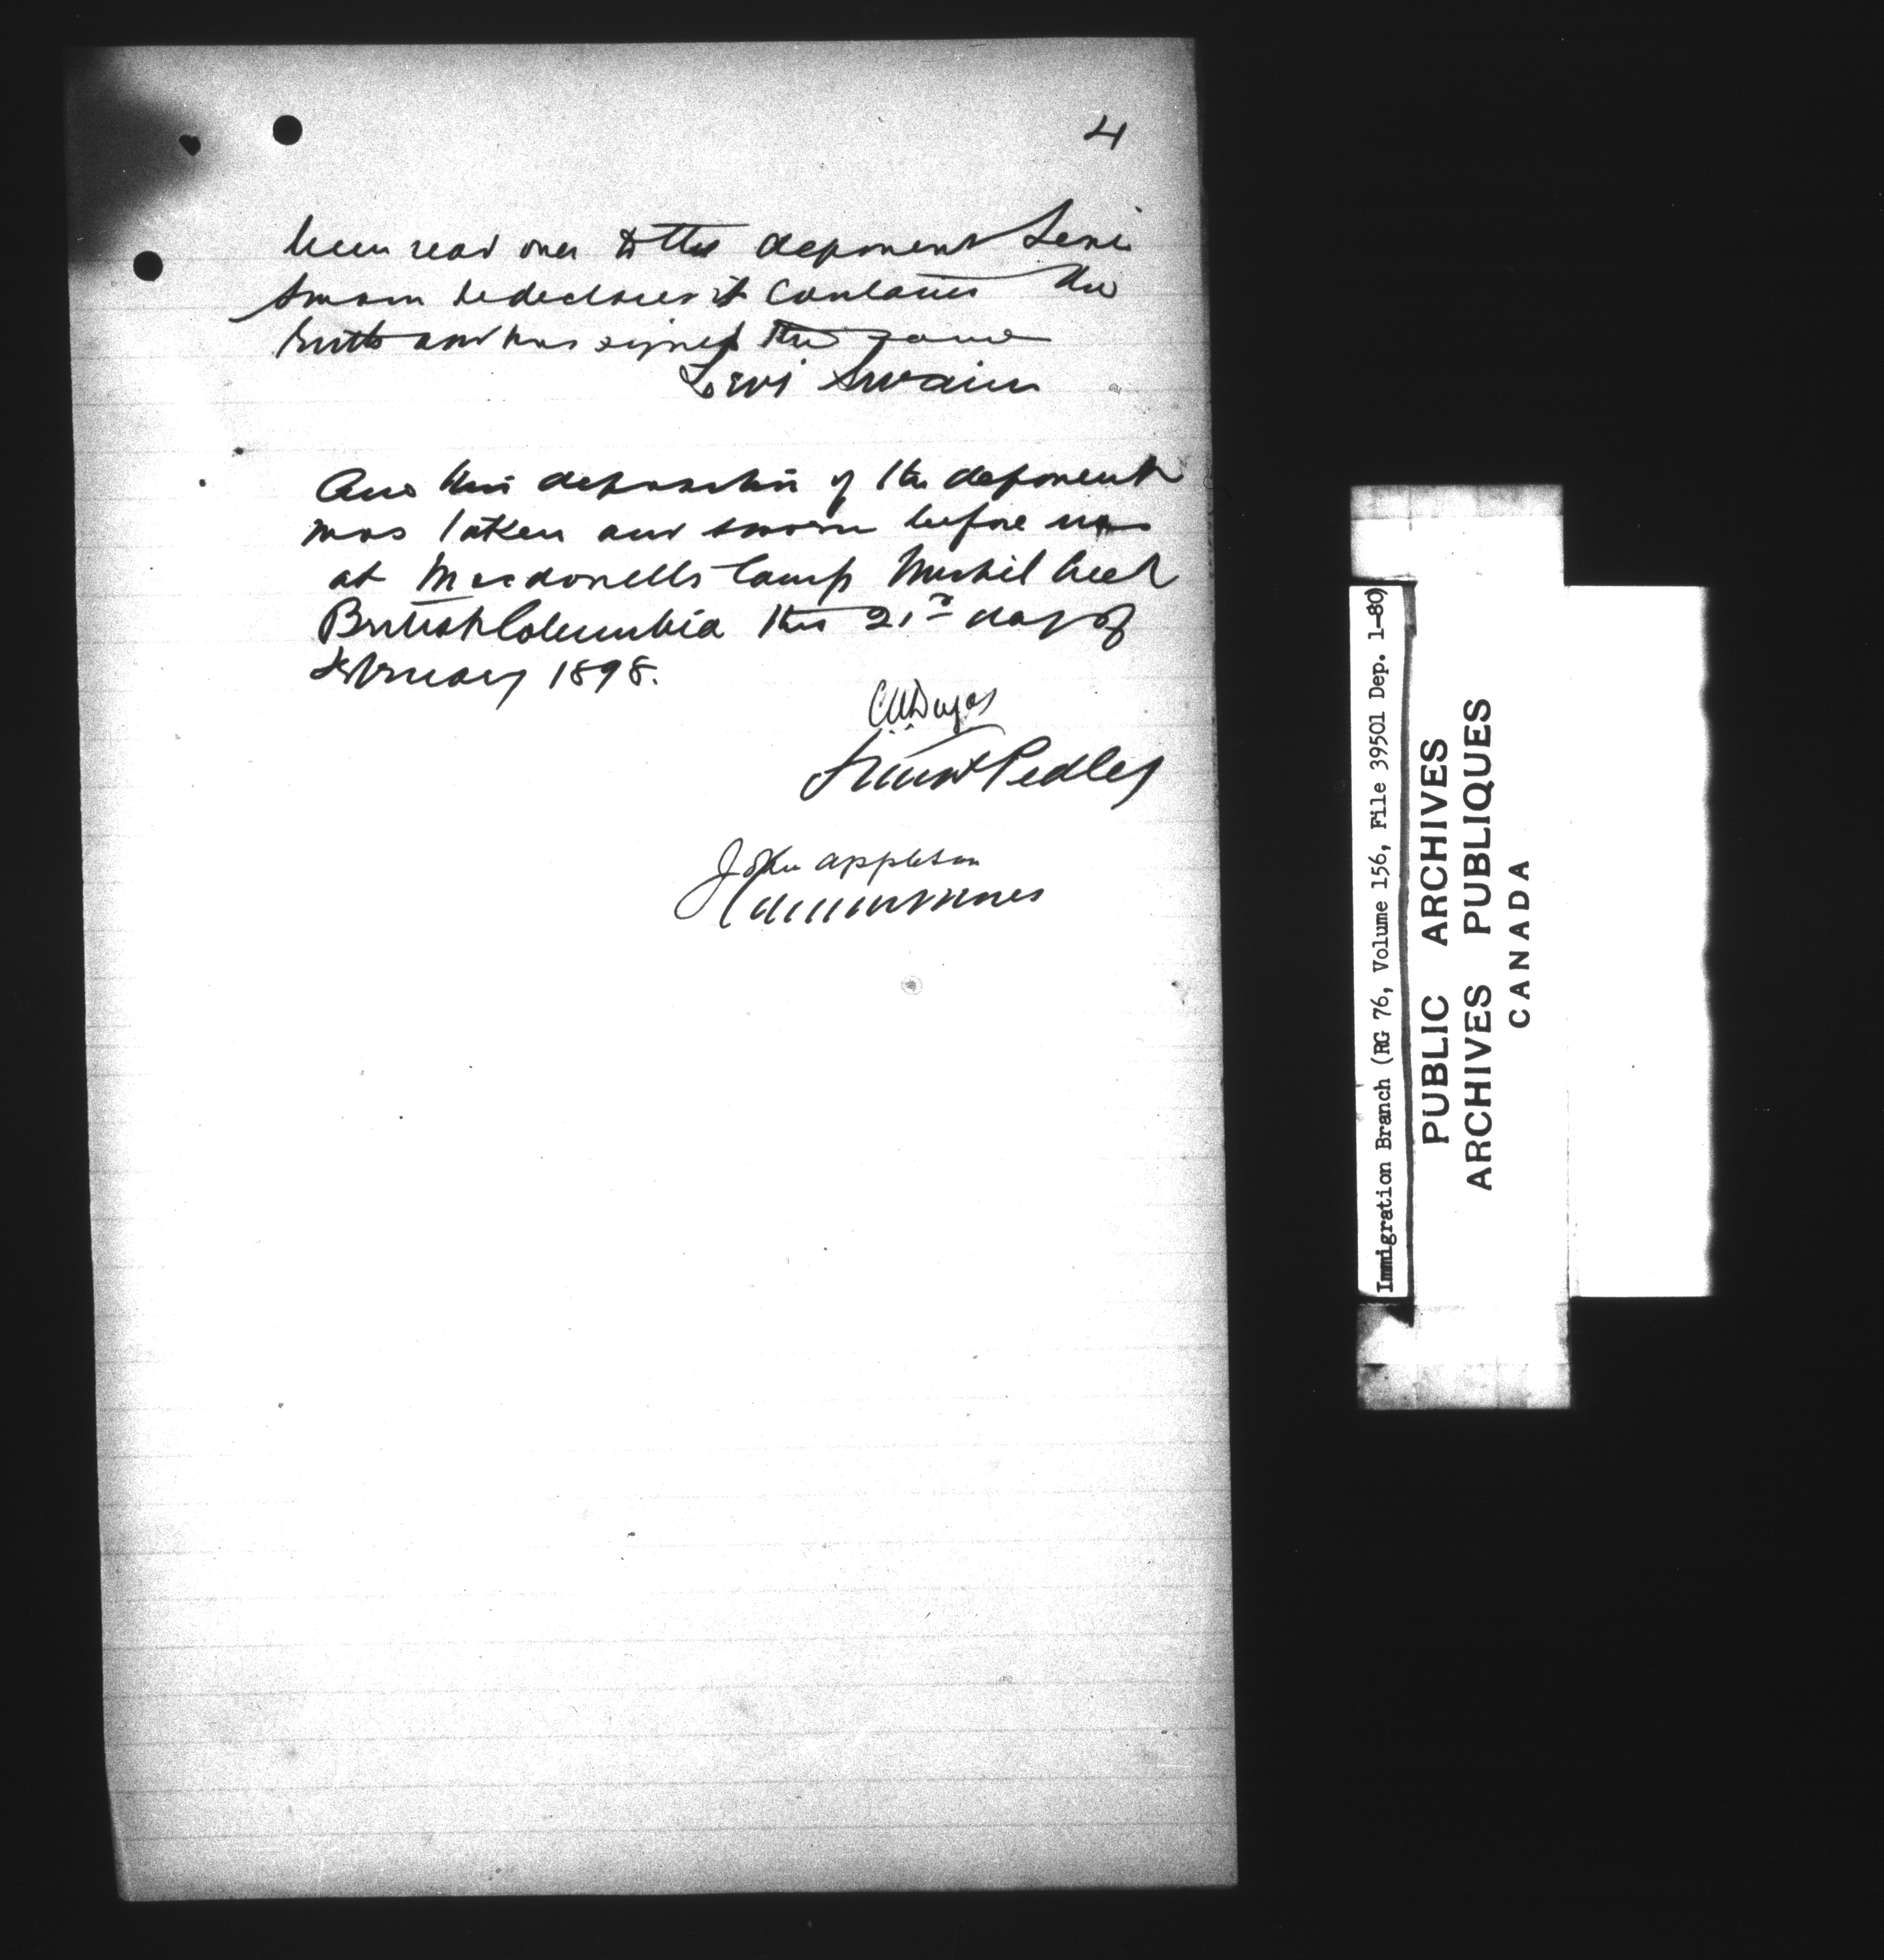 4
been read over to the deponent Levi
Swain he declares it contains the
truth and has signed the same
Levi Swain
And this deposition of the deponent
was taken and sworn before us
at Macdonells Camp Michel Creek
British Columbia this 21st day of
February 1898.
C A Dugas
Pedley
John Appleton
Commissioners
Immigration Branch (RG 76, Volume 156, File 39501 Dep. 1-80)
PUBLIC ARCHIVES
ARCHIVES PUBLIQUES
CANADA